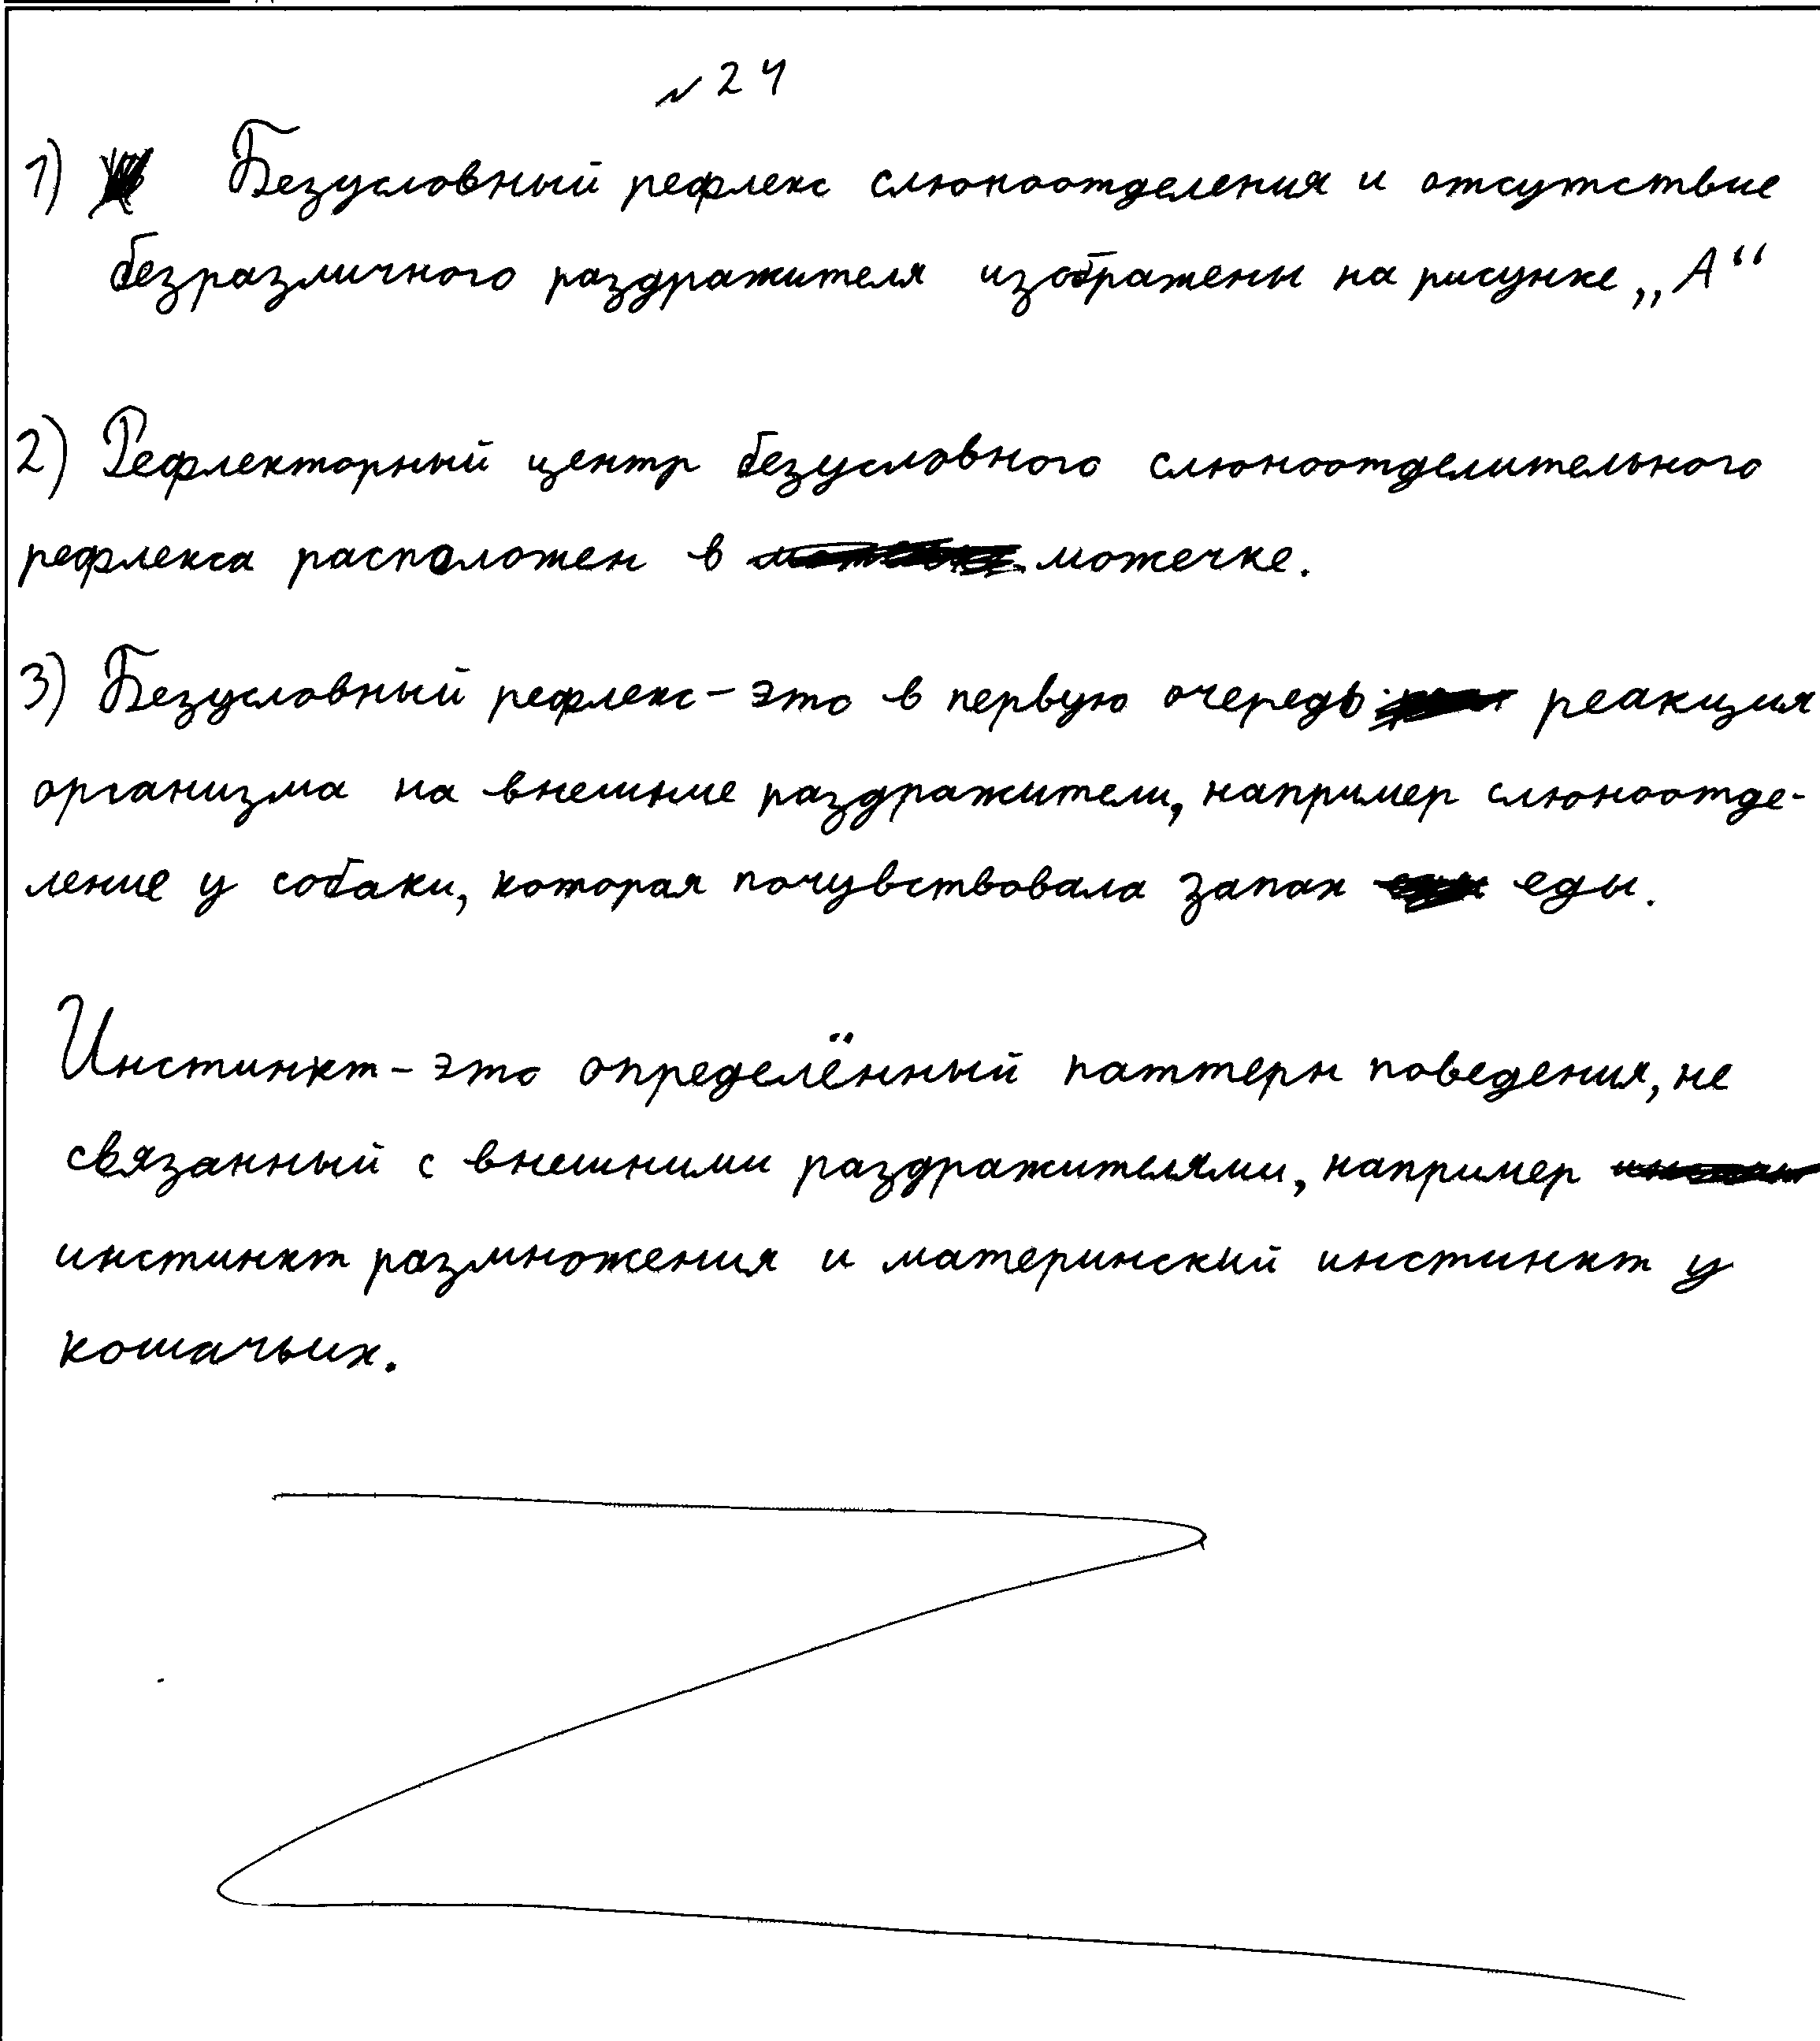 № 24
1) Безусловный рефлекс слюноотделения и отсутствие
безразличного раздражителя изображены на рисунке „А“
2) Рефлекторный центр безусловного слюноотделительного
рефлекса расположен в можечке.
3) Безусловный рефлекс – это в первую очередь реакция
организма на внешние раздражители, например слюноотде-
ление у собаки, которая почувствовала запах еды.
Инстинкт – это определённый паттерн поведения, не
связанный с внешними раздражителями, например
инстинкт размножения и материнский инстинкт у
кошачьих.